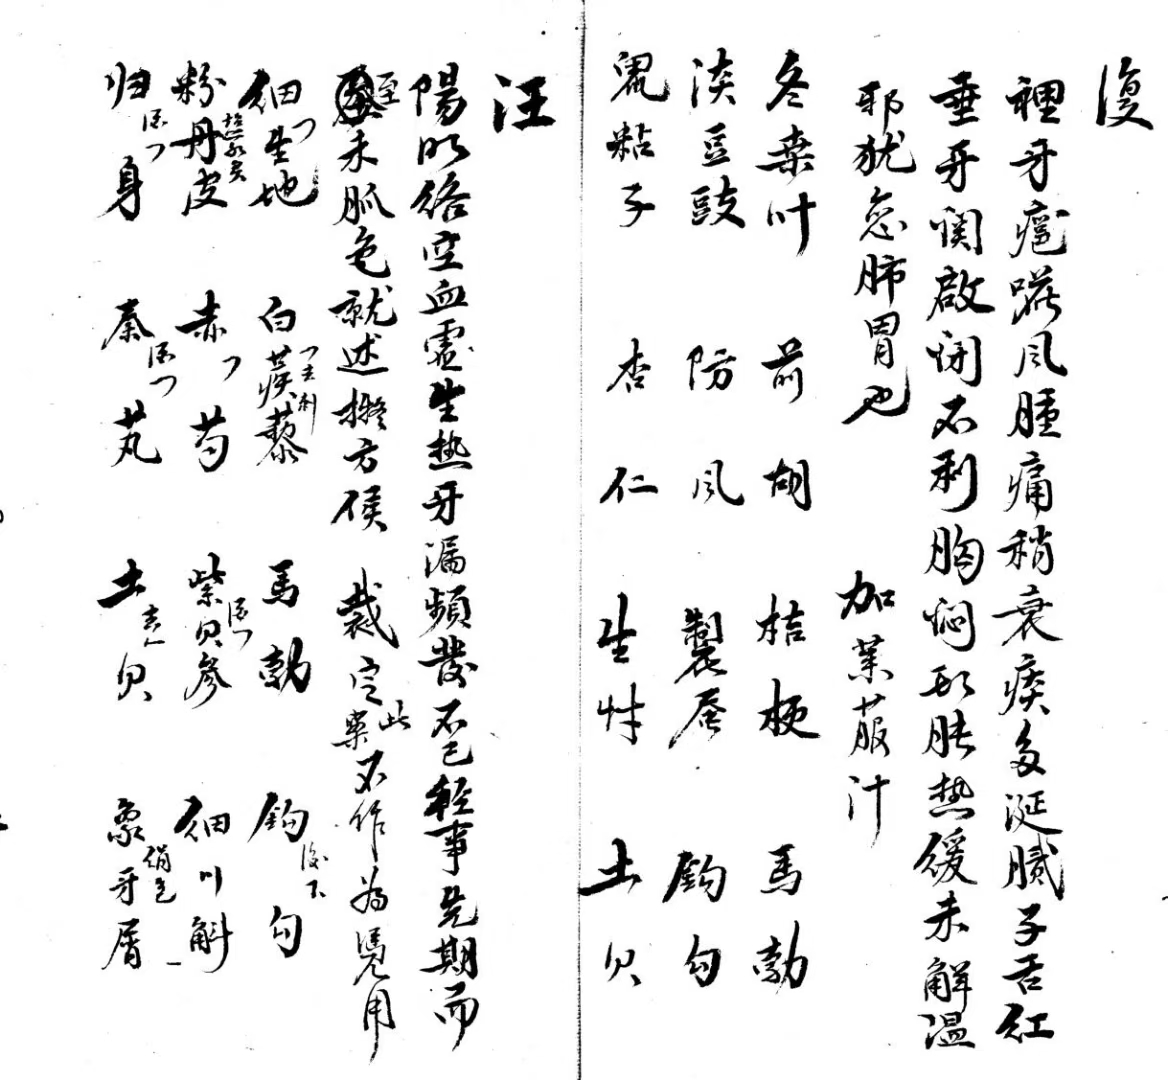 復
裡牙疱蹉風腫痛稍衰痰多涎膩子舌紅
垂牙関啟闭不利胸悶形脹热緩未解温
邪犹恋肺胃也 加莱菔汁
冬桑叶 前胡 桔梗 馬勃
淡豆豉 防風 製蚕 鈎勾
鼠粘子 杏仁 生草 土贝
汪
陽明絡空血虚生热牙漏頻發不已輕事先期而
至未脈色就述擬方候 裁定此案不作為憑用
细生地 白蒺藜 馬勃 鈎勾 後下
粉丹皮 赤芍 紫贝參 细川斛
归身 秦艽 土贝 象牙屑 絹包